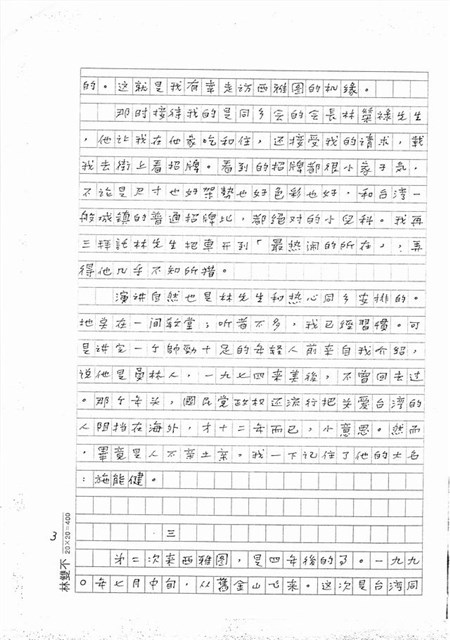 的。这就是我有幸走访西雅圖的机緣。
那时接待我的是同乡会的会長林榮緑先生
，他让我在他家吃和住，还接受我的请求，载
我去街上看招牌。看 的招牌都很小家子气，
不论是尺寸也好架势也好色彩也好，和台湾一
般城镇的普通招牌比，都絕对的小兒科。我再
三拜託林先生把車开往「最热闹的所在」，弄
得他几乎不知所措。
演讲自然也是林先生和热心同乡安排的。
地点在一间教堂；听者不多，我已經習慣。可
是讲完一个帅劲十足的年轻人前来自我介紹，
说他是員林人，一九七四來美後，不曾回去过
。那个年头，國民党政权还流行把关爱台湾的
人阻挡在海外，才十二年而已，小意思。然而
，畢竟是人不亲土亲，我一下记住了他的大名
：施能健。
三
第二次来西雅圖，是四年後的了。一九九
〇年七月中旬，从舊金山飞来。这次是台湾同
3
林雙不 20×20=400